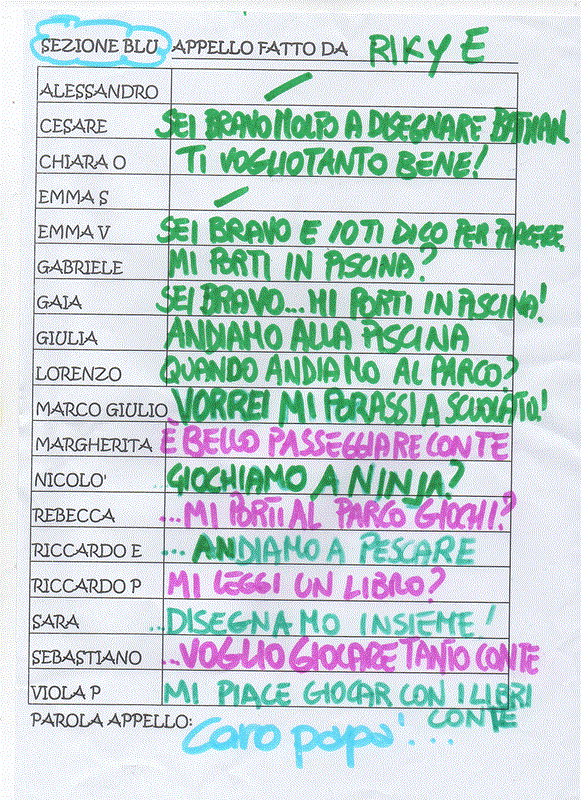 SEZIONE BLU APPELLO FATTO DA RIKY E
ALESSANDRO
CESARE SEI BRAVO MOLTO A DISEGNARE BATMAN.
CHIARA O TI VOGLIO TANTO BENE!
EMMA S
EMMA V SEI BRAVO E IO TI DICO PER PIACERE.
GABRIELE MI PORTI IN PISCINA?
GAIA SEI BRAVO... MI PORTI IN PISCINA!
GIULIA ANDIAMO ALLA PISCINA
LORENZO QUANDO ANDIAMO AL PARCO?
MARCO GIULIO VORREI MI PORASSI A SCUOLA TU!
MARGHERITA È BELLO PASSEGGIARE CON TE
NICOLO' GIOCHIAMO A NINJA?
REBECCA ...MI PORTI AL PARCO GIOCHI?
RICCARDO E ... ANDIAMO A PESCARE
RICCARDO P MI LEGGI UN LIBRO?
SARA ..DISEGNAMO INSIEME!
SEBASTIANO ..VOGLIO GIOCARE TANTO CON TE
VIOLA P MI PIACE GIOCAR CON I LIBRI
CON TE
PAROLA APPELLO: Caro papa'...